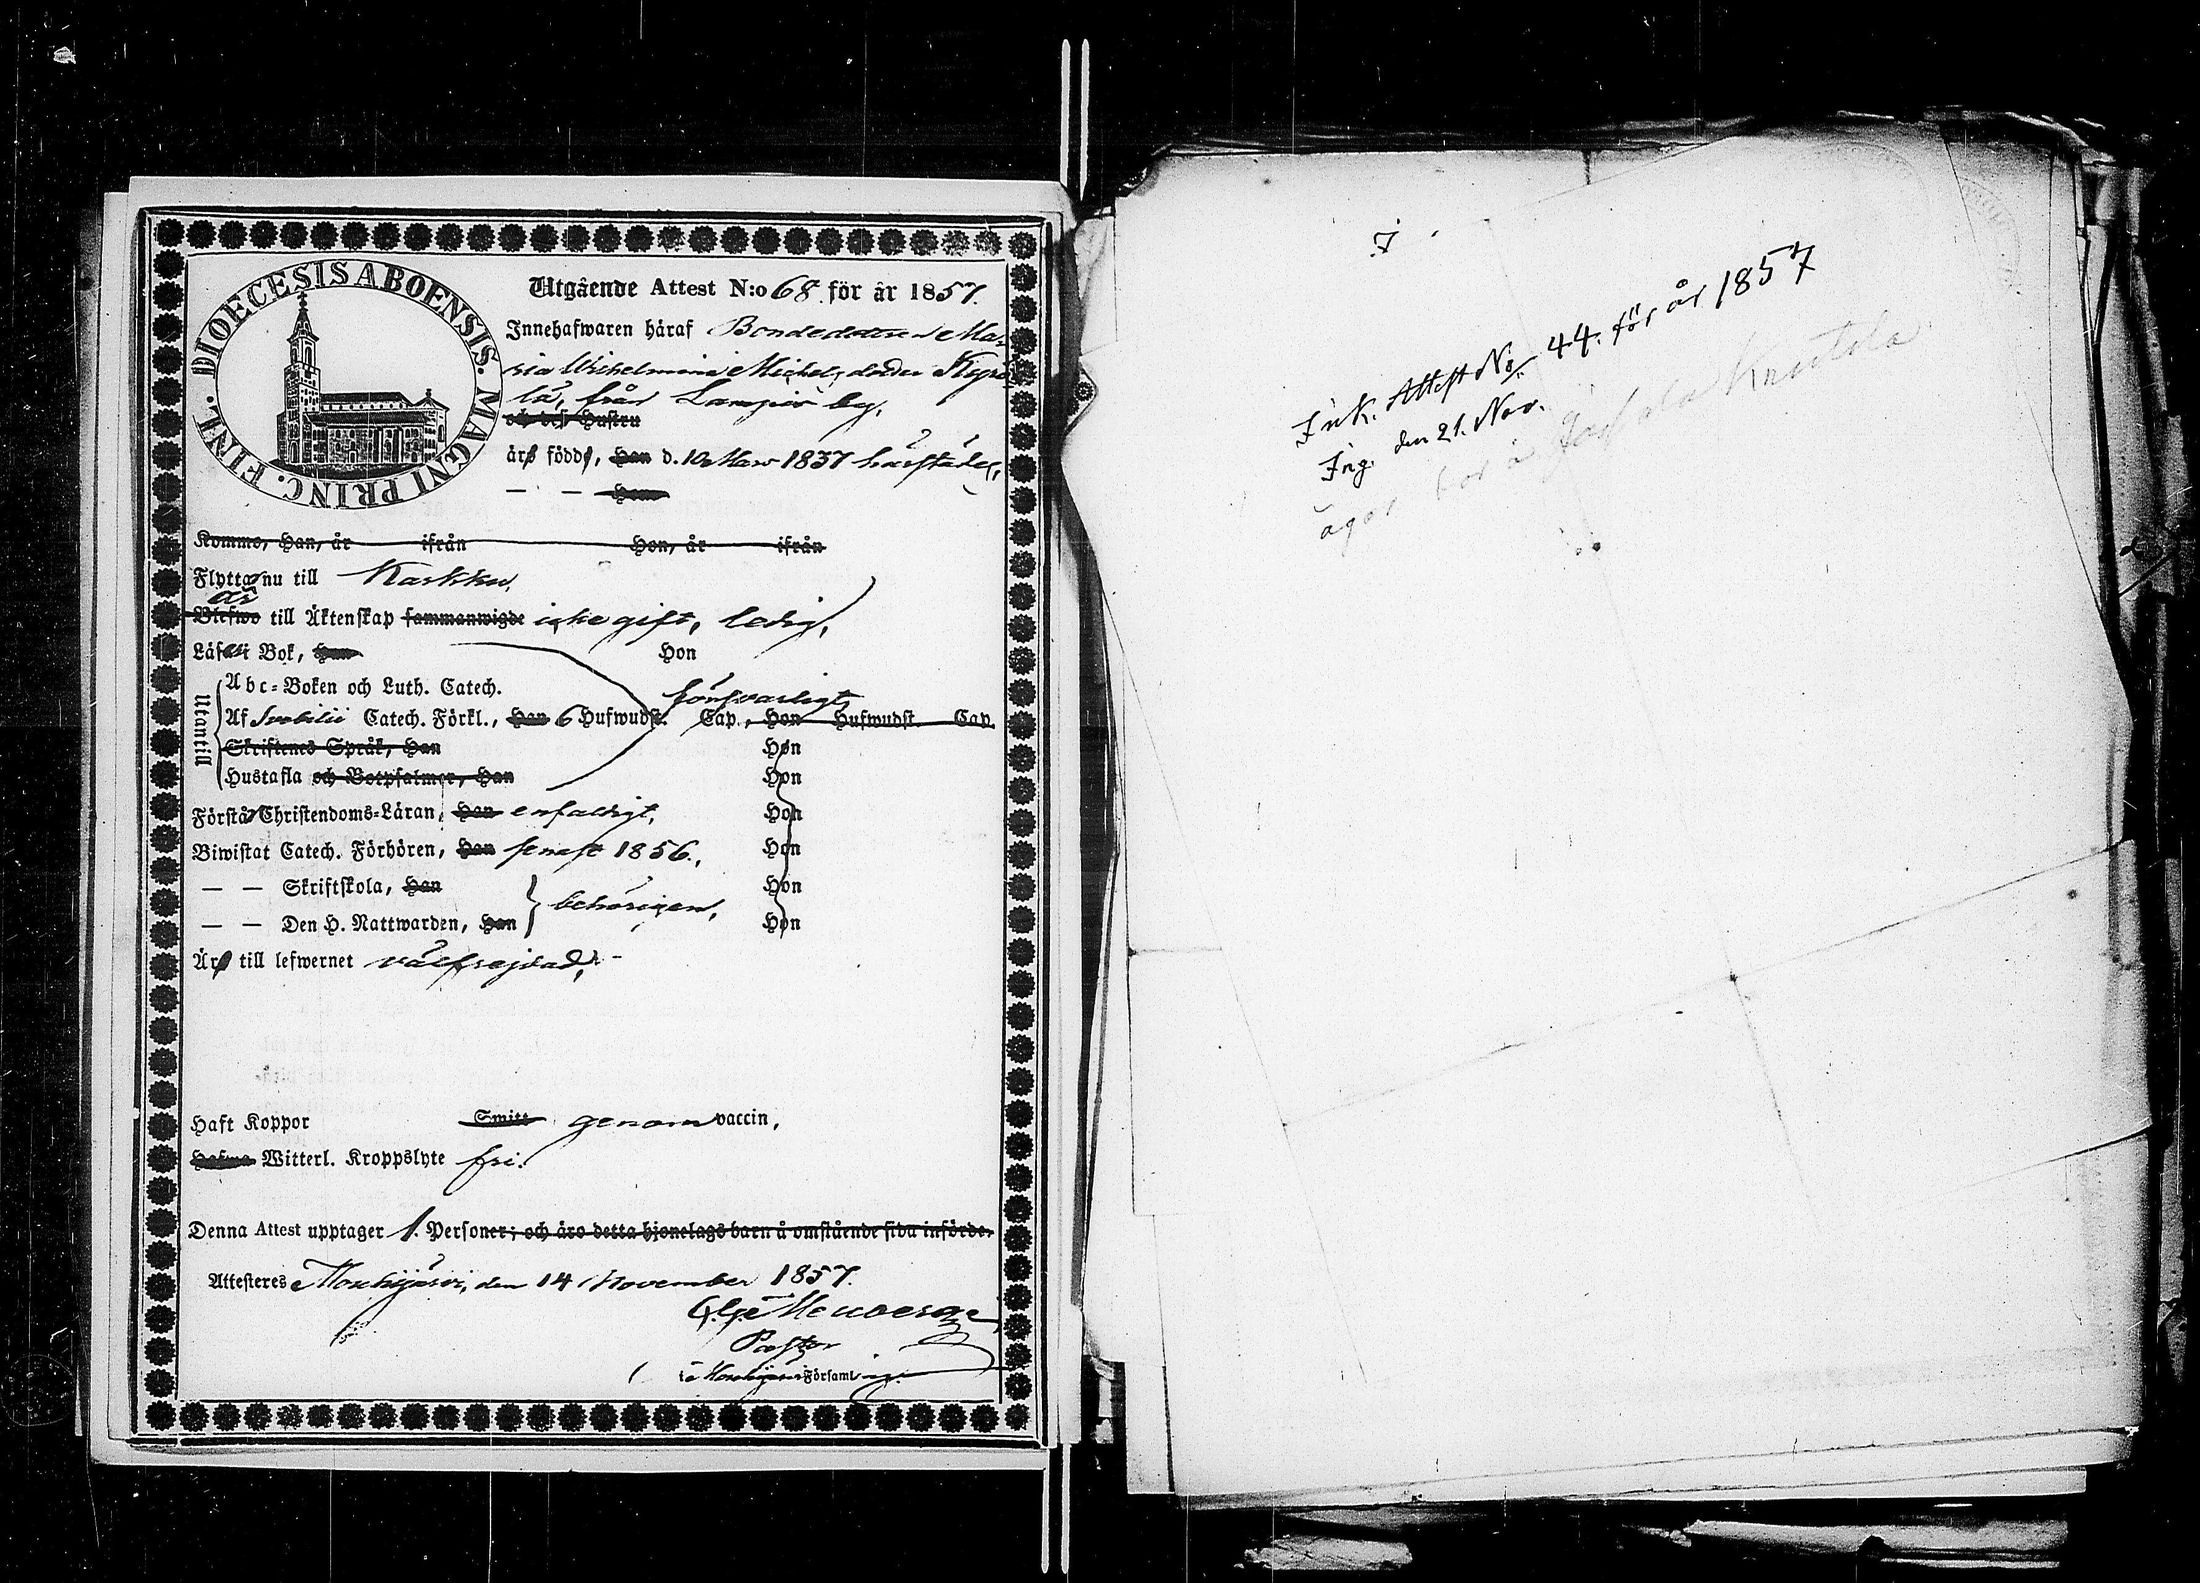 DIOECESIS ABOENSIS. MAGNI PRINC. FINL.
Utgående Attest N:o 68 för år 1857.
Innehafwaren häraf Bondedottren Ma-
ria Wilhelmina Michelsdotter Kyrö-
lä, från Lampis by,
och dess Hustru
äro födde, Han d. 10 Mars 1837 härstädes,
— — Hon
Komne, Han, år ifrån Hon, år ifrån
Flytta nu till Karkku,
är
Blefwo till Äktenskap sammanwigde icke gift, ledig,
Läser i Bok, Han Hon
Utantill
Abc-Boken och Luth. Catech.
försvarligt,
Af Svebilii Catech. Förkl., Han 6 Hufwudst. Cap., Hon Hufwudst. Cap.
Skriftenes Språk, Han Hon
Hustafla och Botpsalmer, Han Hon
Förstår Christendoms-Läran, Han enfaldigt, Hon
Biwistat Catech. Förhören, Han senast 1856., Hon
— — Skriftskola, Han Hon
behörigen,
— — Den H. Nattwarden, Han Hon
Äro till lefwernet välfrejdad,
Haft Koppor Smitt genom vaccin,
Hafwa Witterl. Kroppslyte fri.
Denna Attest upptager 1. Personer; och äro detta hjonelags barn å omstående sida införde.
Attesteres Mouhijärvi, den 14 November 1857.
Pastor
i Mouhijärvi Församling.
7
Ink. Attest No 44. för år 1857
Ing. den 21. Nov.
äger bor å Knutila